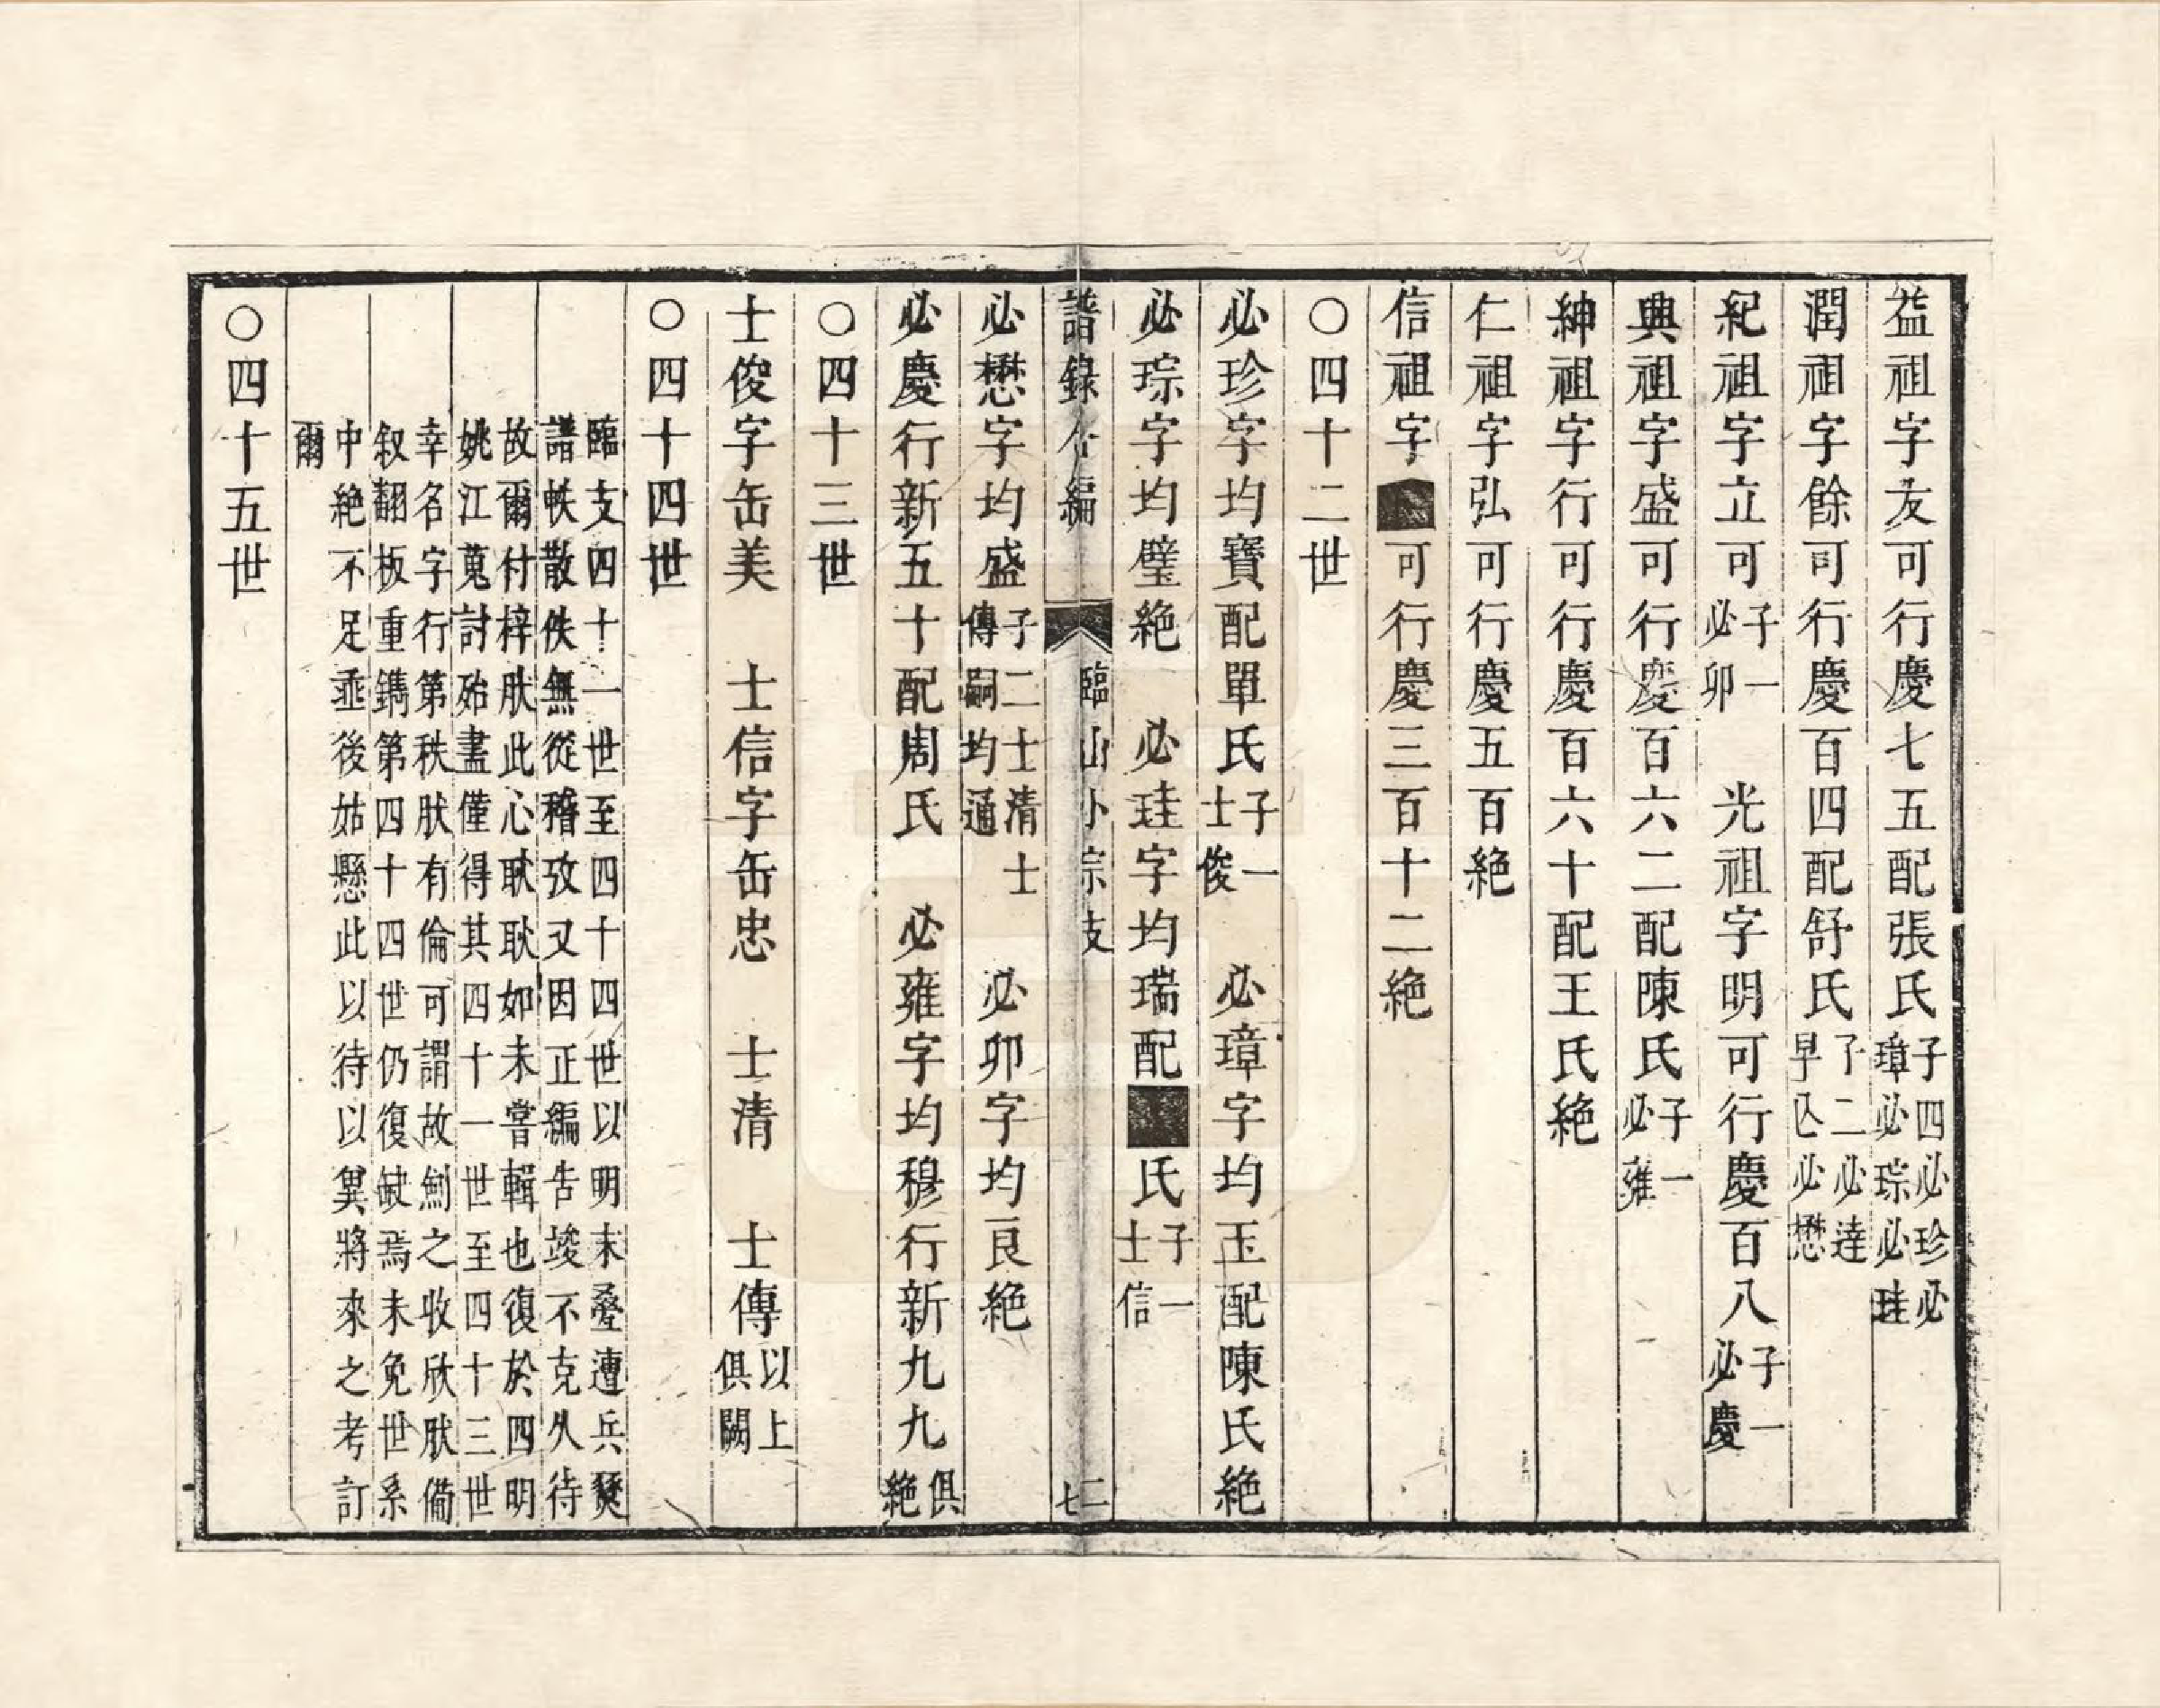 益祖字友可行慶七五配張氏子四必珍必璋必琮必珪
潤祖字餘可行慶百四配舒氏子二必達早亾必懋
紀祖字立可子一必卯　光祖字明可行慶百八子一必慶
典祖字盛可行慶百六二配陳氏子一必雍
紳祖字行可行慶百六十配王氏絶
仁祖字弘可行慶五百絶
信祖字可行慶三百十二絶
○四十二世
必珍字均寶配單氏子一士俊　必璋字均玉配陳氏絶
必琮字均璧絶　必珪字均瑞配氏子一士信
譜錄　編　臨山小宗支　二七
必懋字均盛子二士清士傳嗣均通　必卯字均良絶
必慶行新五十配周氏　必雍字均穆行新九九俱絶
○四十三世
士俊字缶美　士信字缶忠　士清　士傳以上俱闕
○四十四世
臨支四十一世至四十四世以明末疊遭兵燹
譜帙散佚無從稽攷又因正編告竣不克久待
故爾付梓肰此心耿耿如未嘗輯也復於四明
姚江蒐討殆盡僅得其四十一世至四十三世
幸名字行第秩肰有倫可謂故劍之收欣肰備
叙翻板重鐫第四十四世仍復缺焉未免世系
中絶不足垂後姑懸此以待以兾將來之考訂
爾
○四十五世